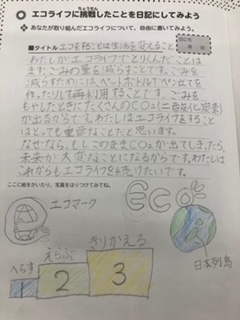 エコライフに挑戦したことを日記にしてみよう
ちょうせん
あなたが取り組んだエコライフについて、自由に書いてみよう。
■タイトル エコをすることは生活を変えること
わたしがエコライフでとりくんだことは
まず、ごみの量を減らすことです。ごみを
減すためにはペットボトルでペン立てを
作ったりして再利用することです。ごみを
もやしたときにたくさんのCO2(二酸化炭素)
が出るからです。わたしはエコライフをすること
はとっても重要なことだと思います。
なぜなら、もしこのままCO2が出てしまったら
未来が大変なことになるからです。わたしは
これからもエコライフを続けたいです。
ここに絵をかいたり、写真をはりつけてみてね。
エコマーク
eco
きりかえる
えらぶ
へらす
1 2 3
日本列島